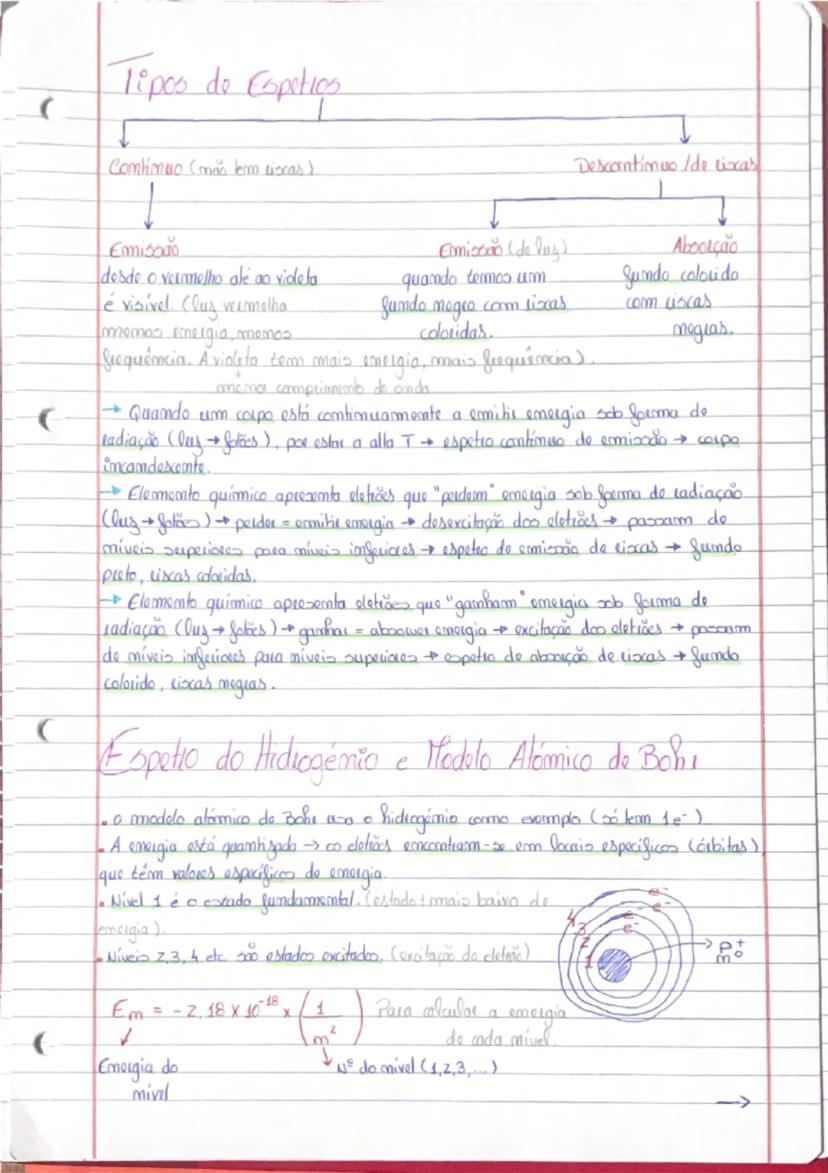 Tipos de Espetros
Contínuo (não tem riscas)
Descontínuo / de riscas
Emissão
desde o vermelho até ao violeta
é visível. (luz vermelha
menos energia, menos
frequência. A violeta tem mais energia, mais frequência).
+
menor comprimento de onda
Emissão (de luz)
quando temos um
fundo negro com riscas
coloridas.
Absorção
fundo colorido
com riscas
negras.
→ Quando um corpo está continuamente a emitir energia sob forma de
radiação (luz → fotões), por estar a alta T → espetro contínuo de emissão → corpo
incandescente.
→ Elemento químico apresenta eletrões que "perdem" energia sob forma de radiação
(luz → fotões) → perder = emitir energia → desexcitação dos eletrões → passam de
níveis superiores para níveis inferiores → espetro de emissão de riscas → fundo
preto, riscas coloridas.
→ Elemento químico apresenta eletrões que "ganham" energia sob forma de
radiação (luz → fotões) → ganhar = absorver energia → excitação dos eletrões → passam
de níveis inferiores para níveis superiores → espetro de absorção de riscas → fundo
colorido, riscas negras.
Espetro do Hidrogénio e Modelo Atómico de Bohr
• O modelo atómico de Bohr usa o hidrogénio como exemplo (só tem 1e⁻)
• A energia está quantizada → os eletrões encontram-se em locais específicos (órbitas),
que têm valores específicos de energia.
• Nível 1 é o estado fundamental. (estado + mais baixo de
energia).
• Níveis 2, 3, 4 etc são estados excitados. (excitação do eletrão)
e⁻
e⁻
e⁻
e⁻
4
3
2
1
p⁺
n⁰
En = -2,18 × 10⁻¹⁸ × (1/n²) Para calcular a energia
de cada nível.
Energia do
nível
Nº do nível (1,2,3,...)
→